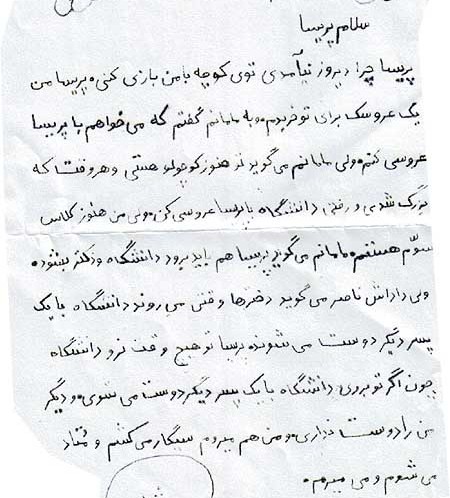 سلام پریسا
پریسا چرا دیروز نیآمدی توی کوچه با من بازی کنی. پریسا من
یک عروسک برای تو خریدم. و به مامانم گفتم که می خواهم با پریسا
عروسی کنم. ولی مامانم می گوید تو هنوز کوچولو هستی و هر وقت که
بزرگ شدی و رفتی دانشگاه با پریسا عروسی کن. ولی من هنوز کلاس
سوّم هستم. مامانم می گوید پریسا هم باید برود دانشگاه و دکتر بشود.
ولی داداش ناصر می گوید دخترها وقتی می روند دانشگاه با یک
پسر دیگر دوست می شوند. پریسا تو هیچ وقت نرو دانشگاه
چون اگر تو بروی دانشگاه با یک پسر دیگر دوست می شوی. و دیگر
من را دوست نداری. و من هم میروم سیگار می کشم و مُتاد
می شوم و می میرم.